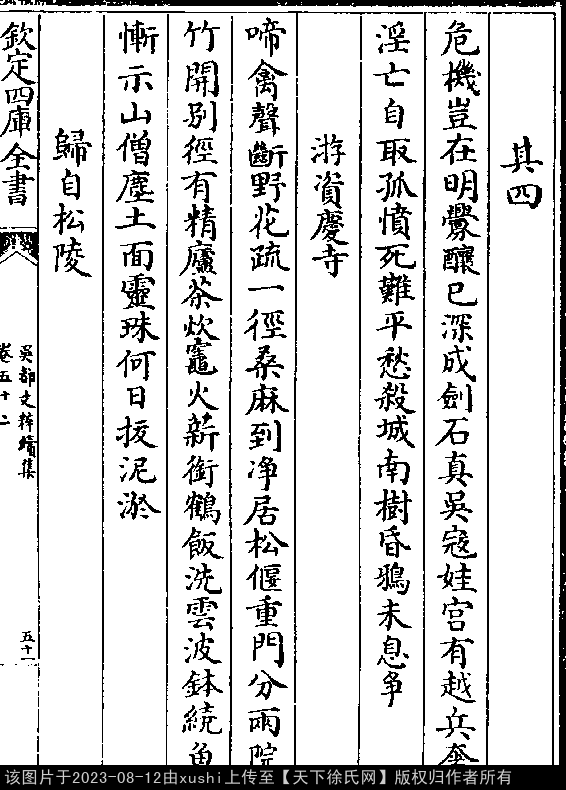 其四
危機豈在明釁釀已深成劍石真吳寇娃宫有越兵奢
淫亡自取孤憤死難平愁殺城南樹昏鴉未息爭
游資慶寺
啼禽聲斷野花疏一徑桑麻到淨居松偃重門分兩院
竹開别徑有精廬茶炊竈火新銜鶴飯洗雲波鉢繞魚
慚示山僧塵土面靈珠何日拔泥淤
歸自松陵
欽定四庫全書
吳都文粹續集
卷五十二
五十一
该图片于2023-08-12由xushi上传至【天下徐氏网】版权归作者所有